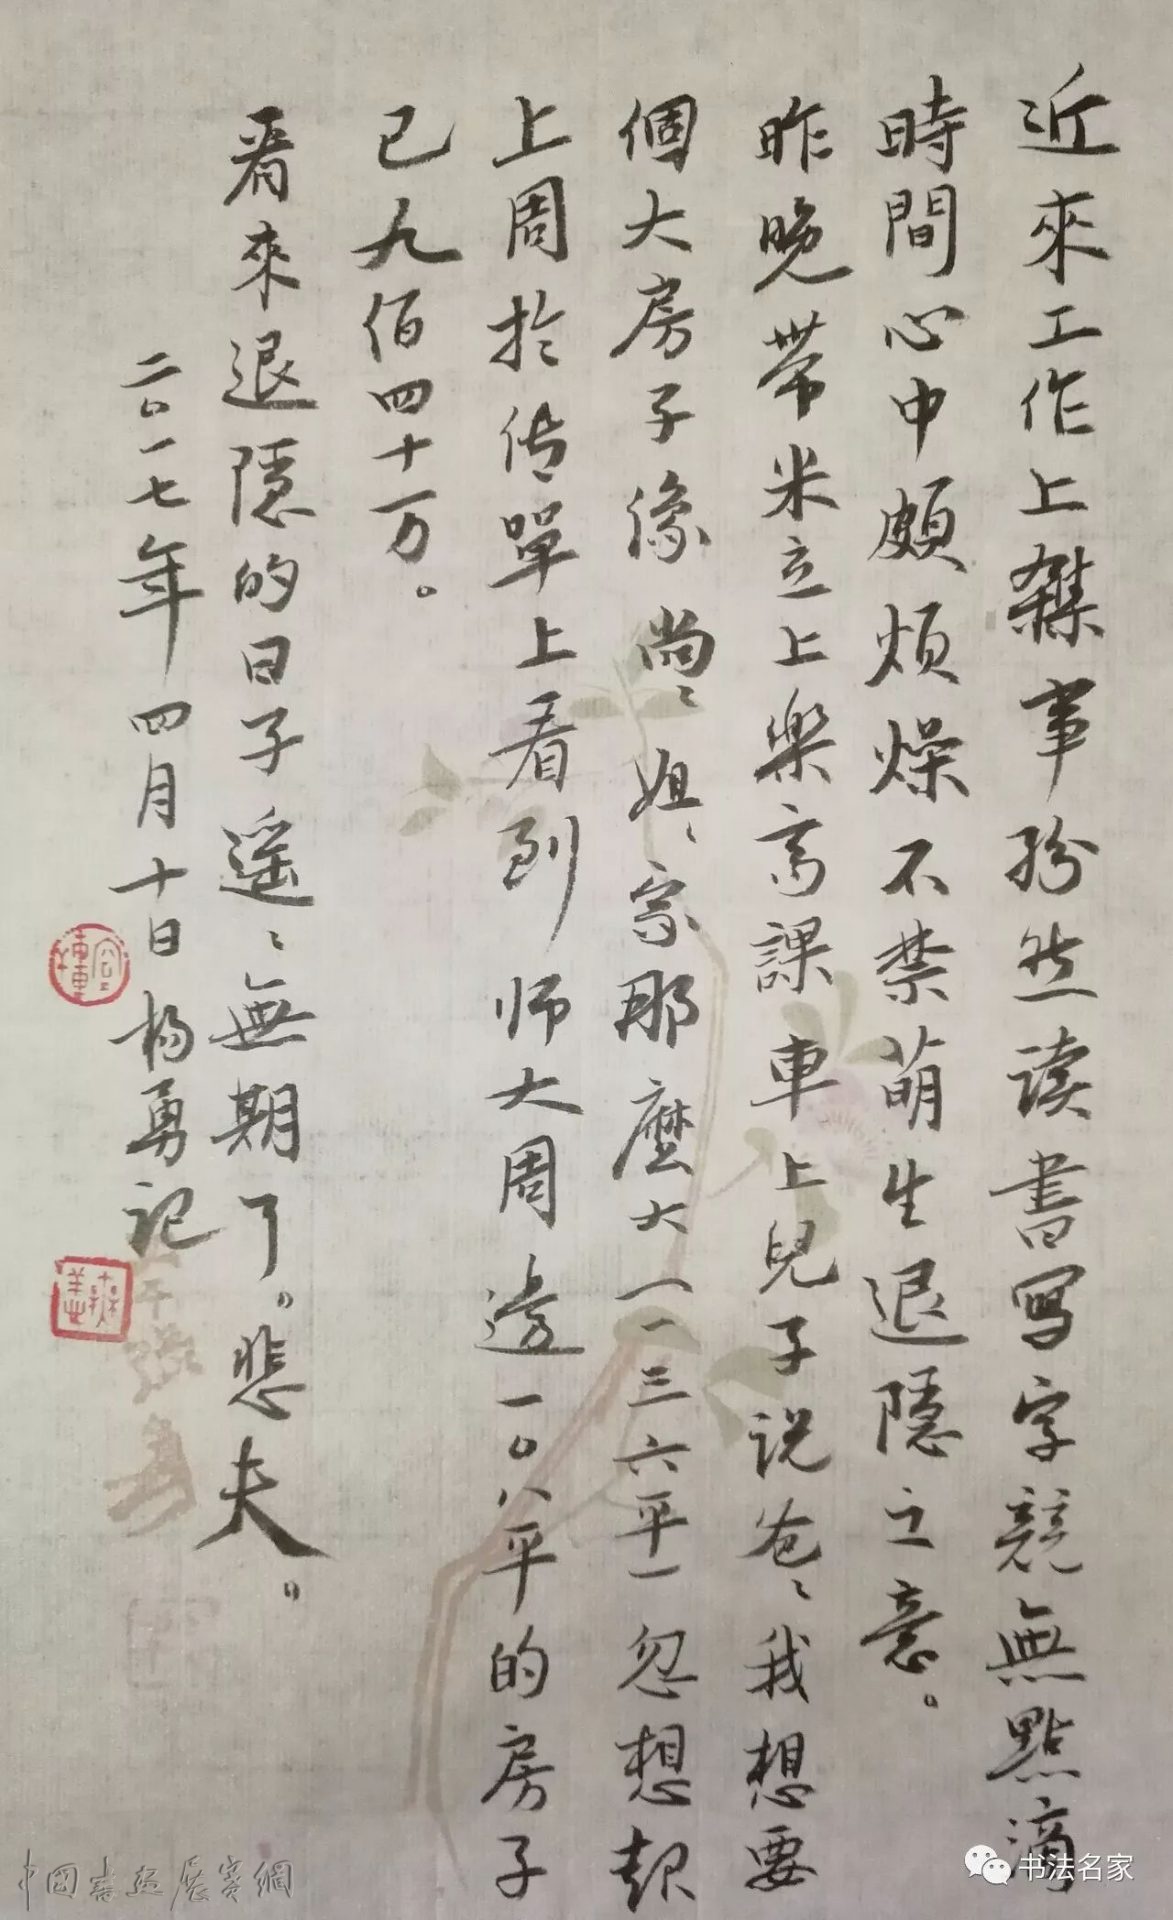 近來工作上雜事紛然读書寫字競無點滴
時間心中頗煩燥不禁萌生退隱之意。
昨晚带米立上樂高課車上兒子说爸〻我想要
個大房子像尚〻姐〻家那麼大一一三六平一忽想起
上周於传單上看到师大周邊一〇八平的房子
已九佰四十万。
看來退隱的日子遥〻無期了。悲夫。
二〇一七年四月十日杨勇记
中國書法展賽網
书法名家